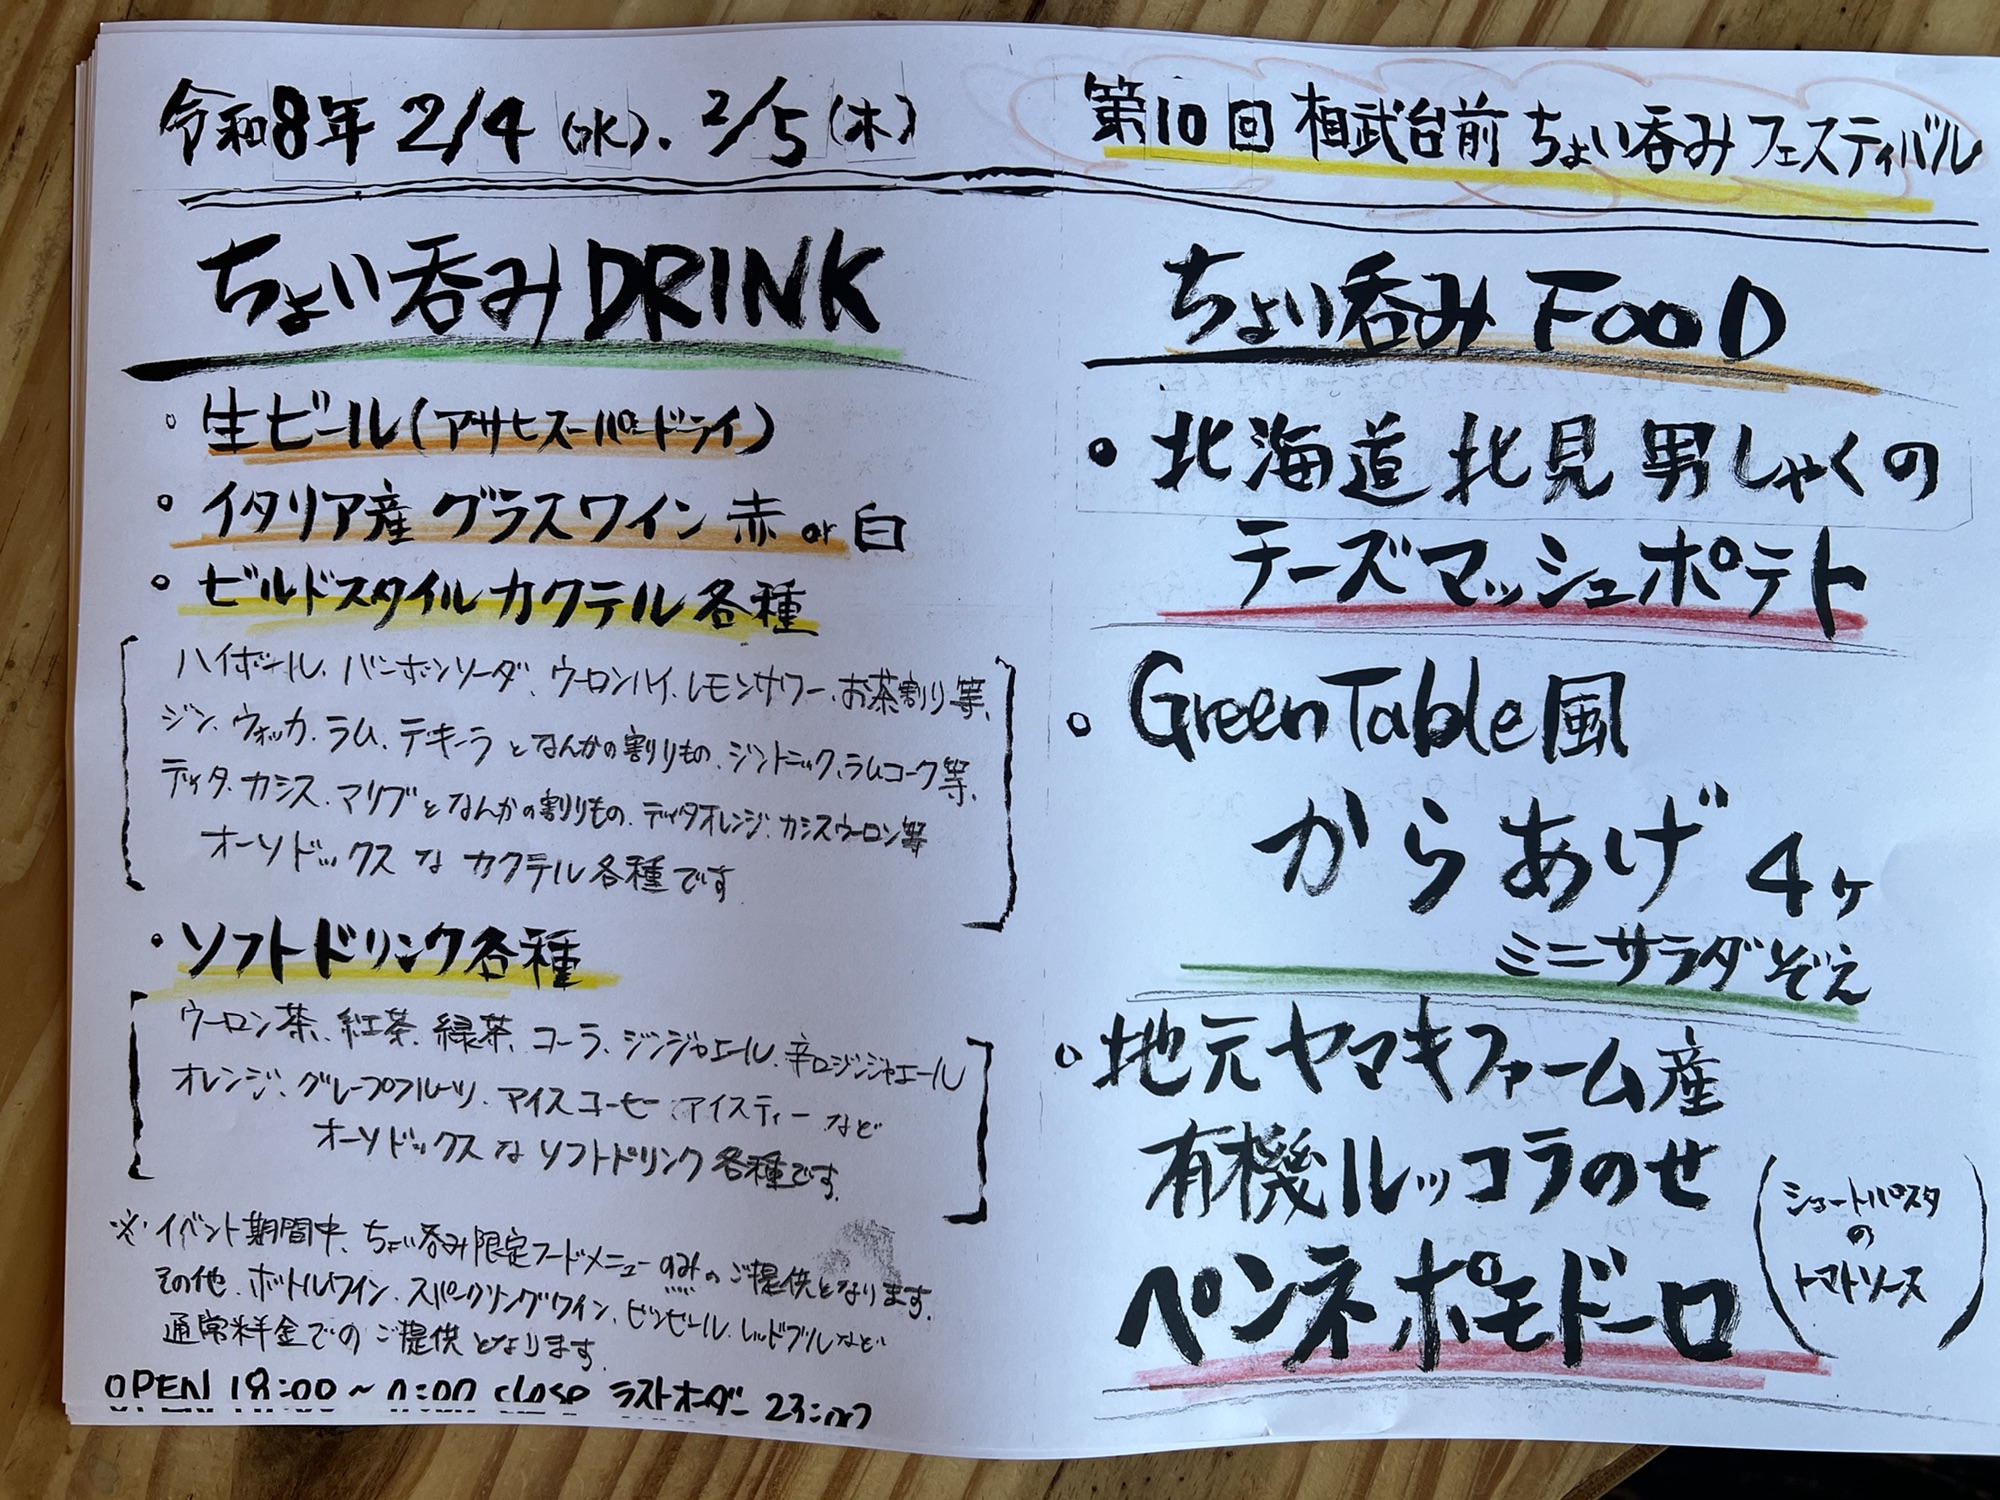 令和8年 2/4(水)・2/5(木)
第10回 相武台前 ちょい呑みフェスティバル
ちょい呑み DRINK
・生ビール(アサヒスーパードライ)
・イタリア産 グラスワイン 赤 or 白
・ビルドスタイルカクテル各種
ハイボール、バーボンソーダ、ウーロンハイ、レモンサワー、お茶割り等、
ジン、ウォッカ、ラム、テキーラとなんかの割りもの、ジントニック、ラムコーク等、
ディタ、カシス、マリブとなんかの割りもの、ディタオレンジ、カシスウーロン等
オーソドックスな カクテル各種です
・ソフトドリンク各種
ウーロン茶、紅茶、緑茶、コーラ、ジンジャエール、辛口ジンジャエール
オレンジ、グレープフルーツ、アイスコーヒー、アイスティー など
オーソドックスな ソフトドリンク各種です。
※イベント期間中、ちょい呑み限定フードメニューのみのご提供となります。
その他、ボトルワイン、スパークリングワイン、ビンビール、レッドブルなど
通常料金でのご提供となります。
OPEN 18:00～0:00 close ラストオーダー 23:00
ちょい呑み FOOD
・北海道 北見 男しゃくの
チーズマッシュポテト
・Green Table風
からあげ 4ヶ
ミニサラダぞえ
・地元ヤマキファーム産
有機ルッコラのせ
ペンネポモドーロ
(ショートパスタ
の
トマトソース)